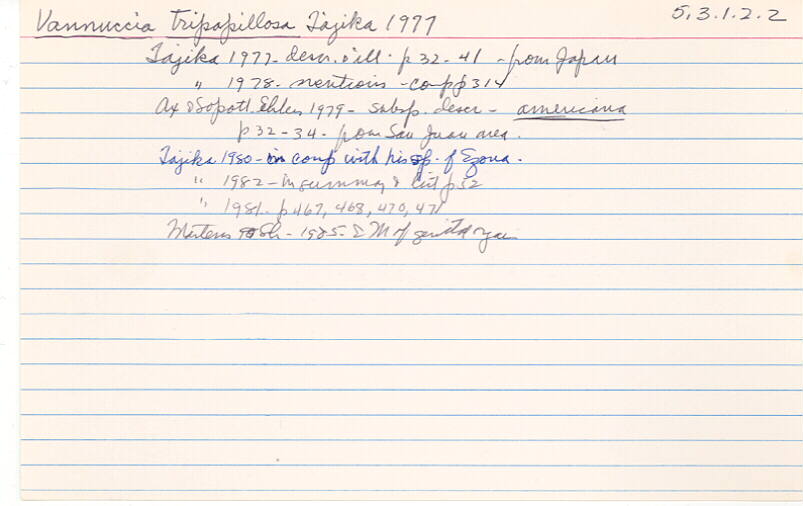 Vannuccia tripapillosa Tajika 1977 5.3.1.2.2
Tajika 1977- descr. & ill. p 32-41 - from Japan
" 1978- mentions - comp p 314
Ax & Sopott-Ehlers 1979- subsp. descr - americana
p 32-34 - from San Juan area.
Tajika 1980- in comp with his sp. of Ezona.
" 1982- in summary & list p 52
" 1981- p 467, 468, 470, 471
Martens & Sch - 1985- EM of genital organ